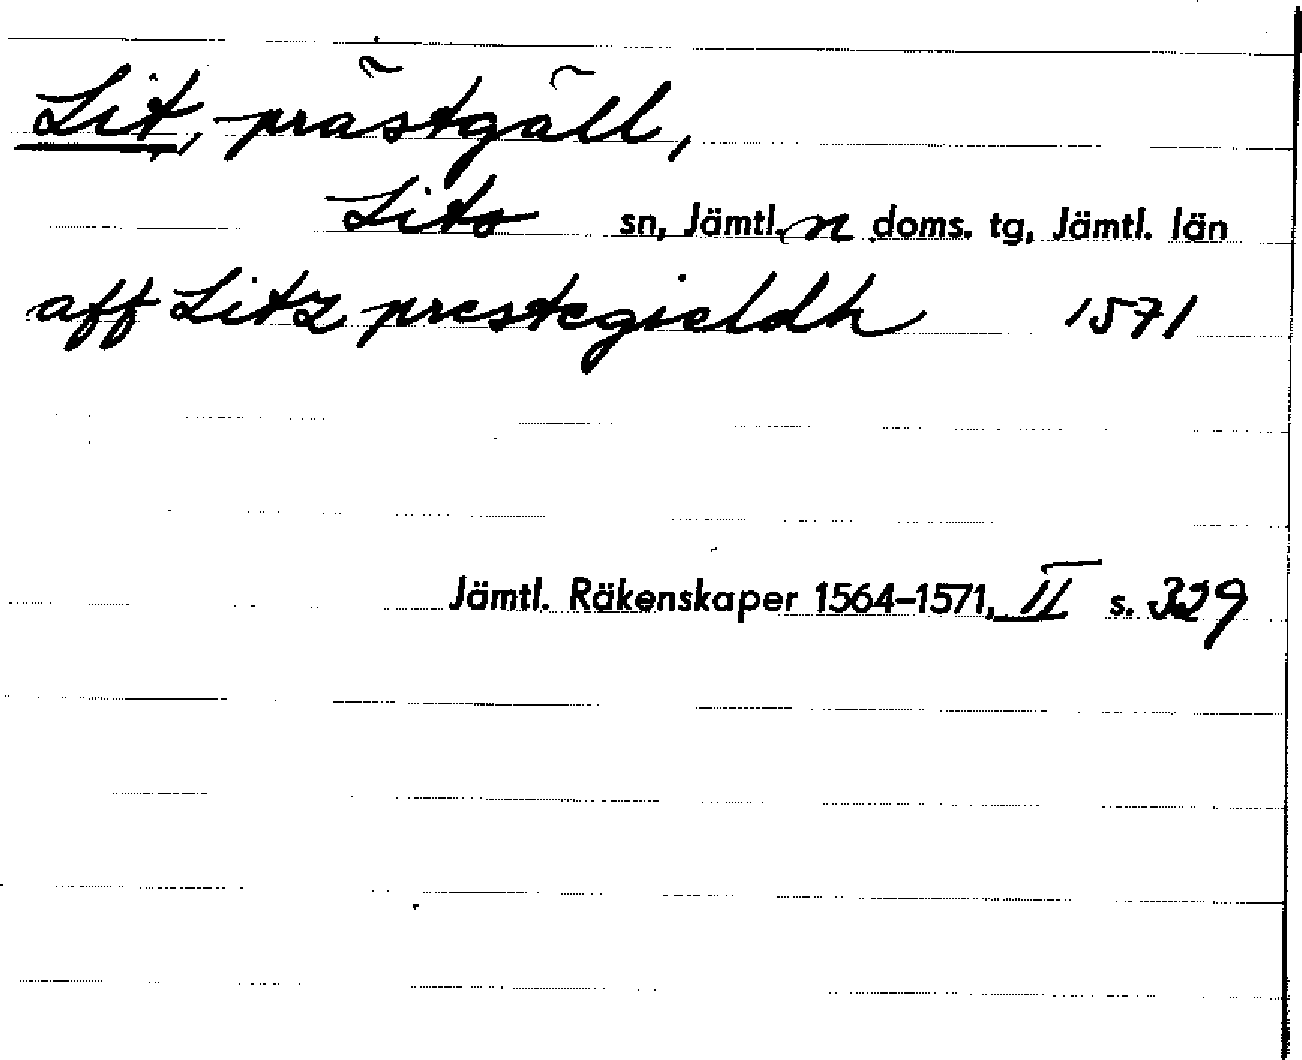 Lit, prästgäll,
Lits sn, Jämtl. n doms. tg, Jämtl. län
aff Litz prestegieldh 1571
Jämtl. Räkenskaper 1564–1571, II s. 329